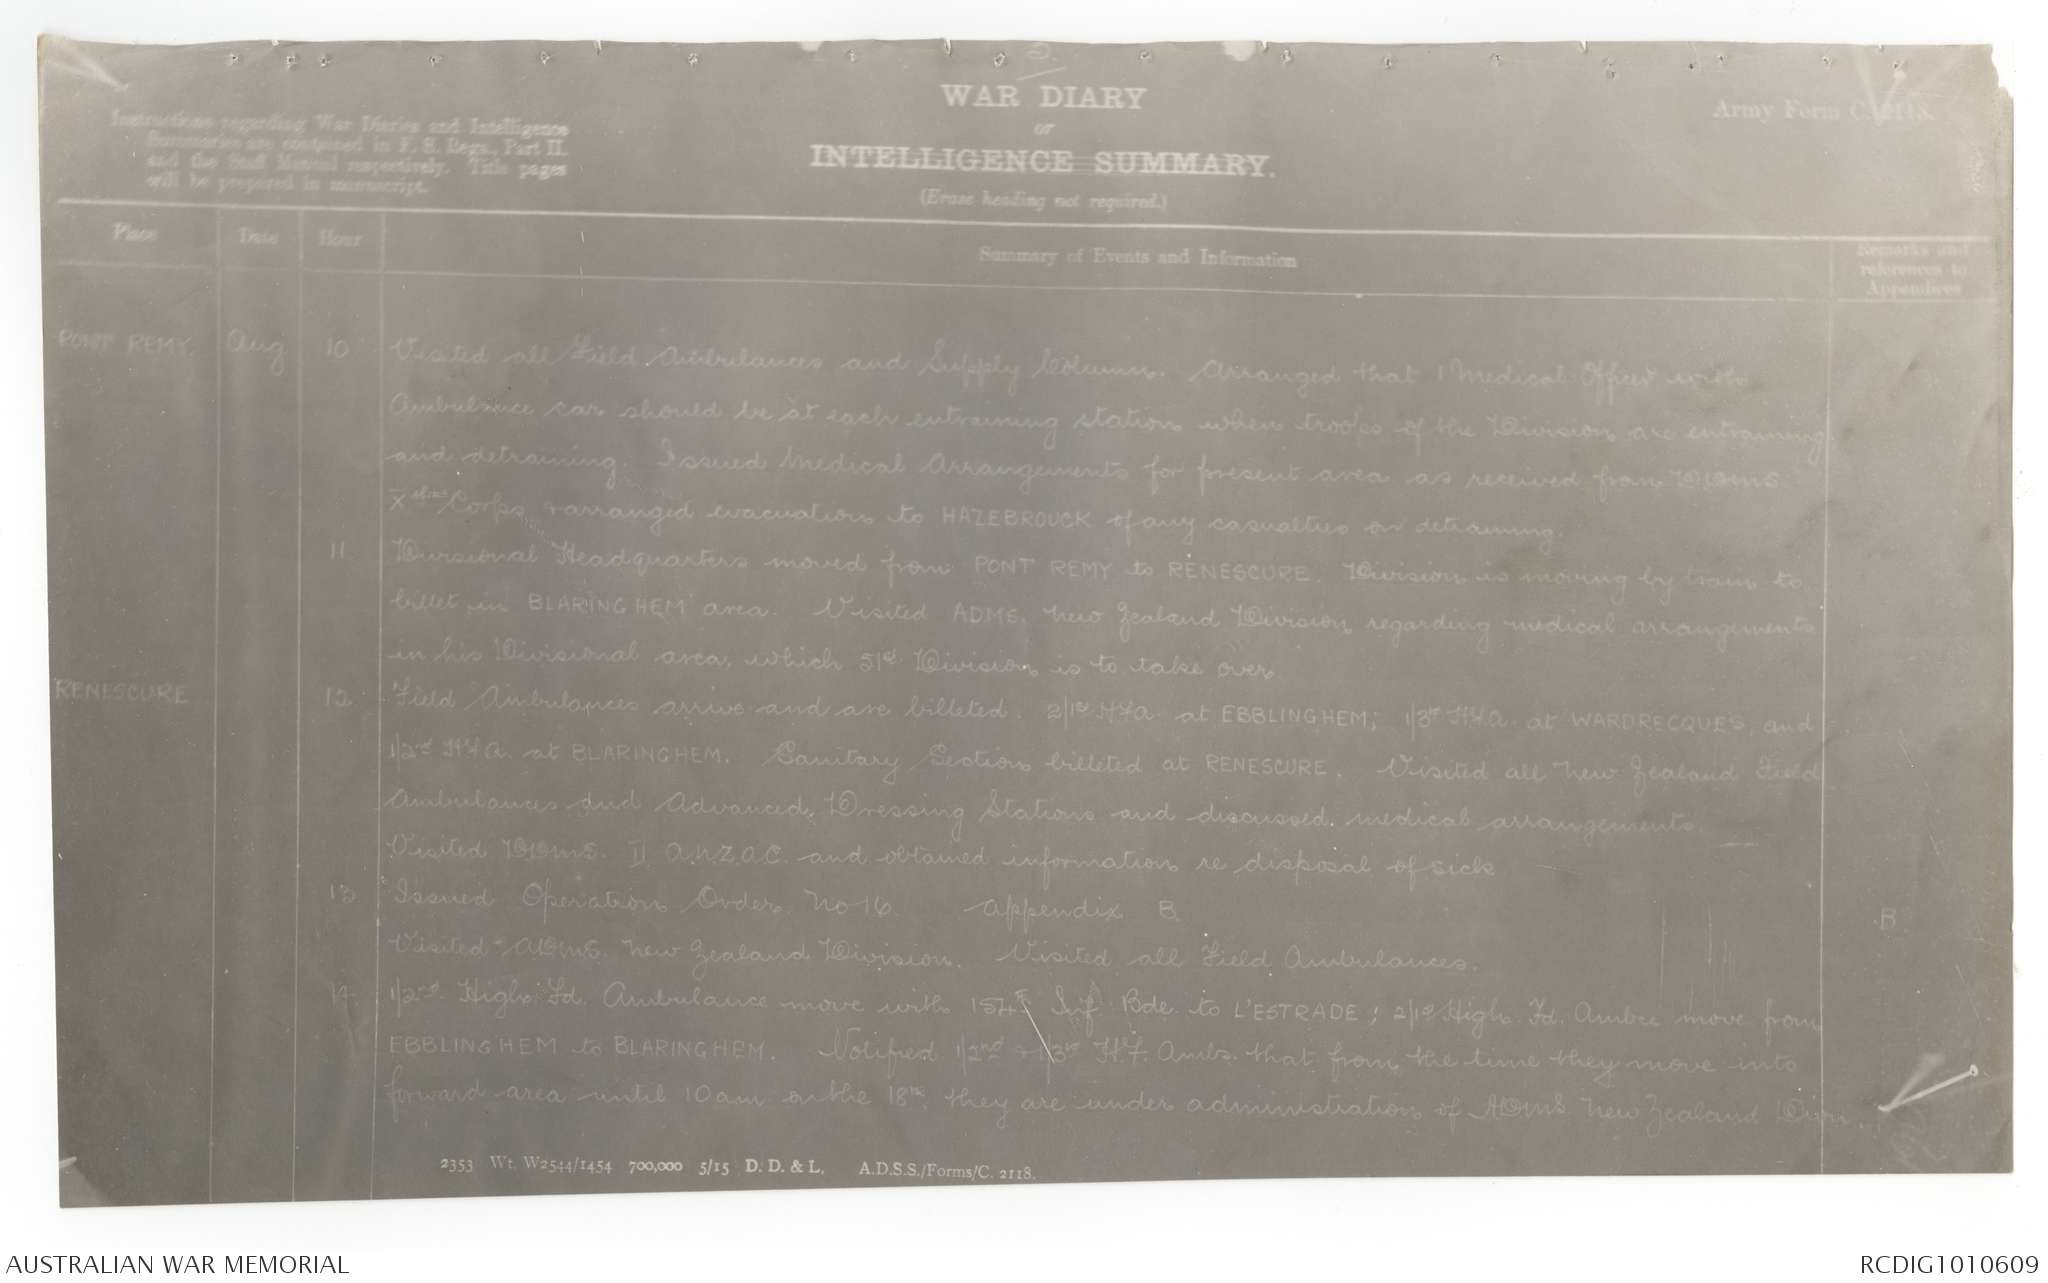 2.
WAR DIARY
or
INTELLIGENCE SUMMARY.
(Erase heading not required.)
Army Form C. 2118.
Instructions regarding War Diaries and Intelligence
Summaries are contained in F. S. Regs., Part II.
and the Staff Manual respectively. Title pages
will be prepared in manuscript.
Place Date Hour Summary of Events and Information Remarks and references to Appendices
PONT REMY. Aug 10 Visited all Field Ambulances and Supply Column. Arranged that 1 Medical Officer with
Ambulance car should be at each entraining station when troops of the Division are entraining
and detraining. Issued Medical Arrangements for present area as received from DDMS
Xth Corps & arranged evacuation to HAZEBROUCK of any casualties on detraining.
11 Divisional Headquarters moved from PONT REMY to RENESCURE. Division is moving by train to
billet in BLARINGHEM area. Visited ADMS. New Zealand Division regarding medical arrangements
in his Divisional area, which 51st Division is to take over
RENESCURE 12 Field Ambulances arrive and are billeted. 2/1st H.F.A. at EBBLINGHEM; 1/3rd H.F.A. at WARDRECQUES, and
1/2nd H.F.A. at BLARINGHEM. Sanitary Section billeted at RENESCURE. Visited all New Zealand Field
Ambulances and Advanced Dressing Stations and discussed medical arrangements.
Visited DDMS. II A.N.Z.A.C. and obtained information re disposal of sick
13 Issued Operation Order No 16. Appendix B. B
Visited ADMS. New Zealand Division. Visited all Field Ambulances.
14 1/2nd High. Fd. Ambulance move with 154th Inf Bde to L'ESTRADE; 2/1st High. Fd. Ambce move from
EBBLINGHEM to BLARINGHEM. Notified 1/2nd & 1/3rd H.F. Ambs. that from the time they move into
forward area until 10 am on the 18th they are under administration of ADMS New Zealand Divn.
2353 Wt. W2544/1454 700,000 5/15 D. D. & L. A.D.S.S./Forms/C. 2118.
AUSTRALIAN WAR MEMORIAL
RCDIG1010609